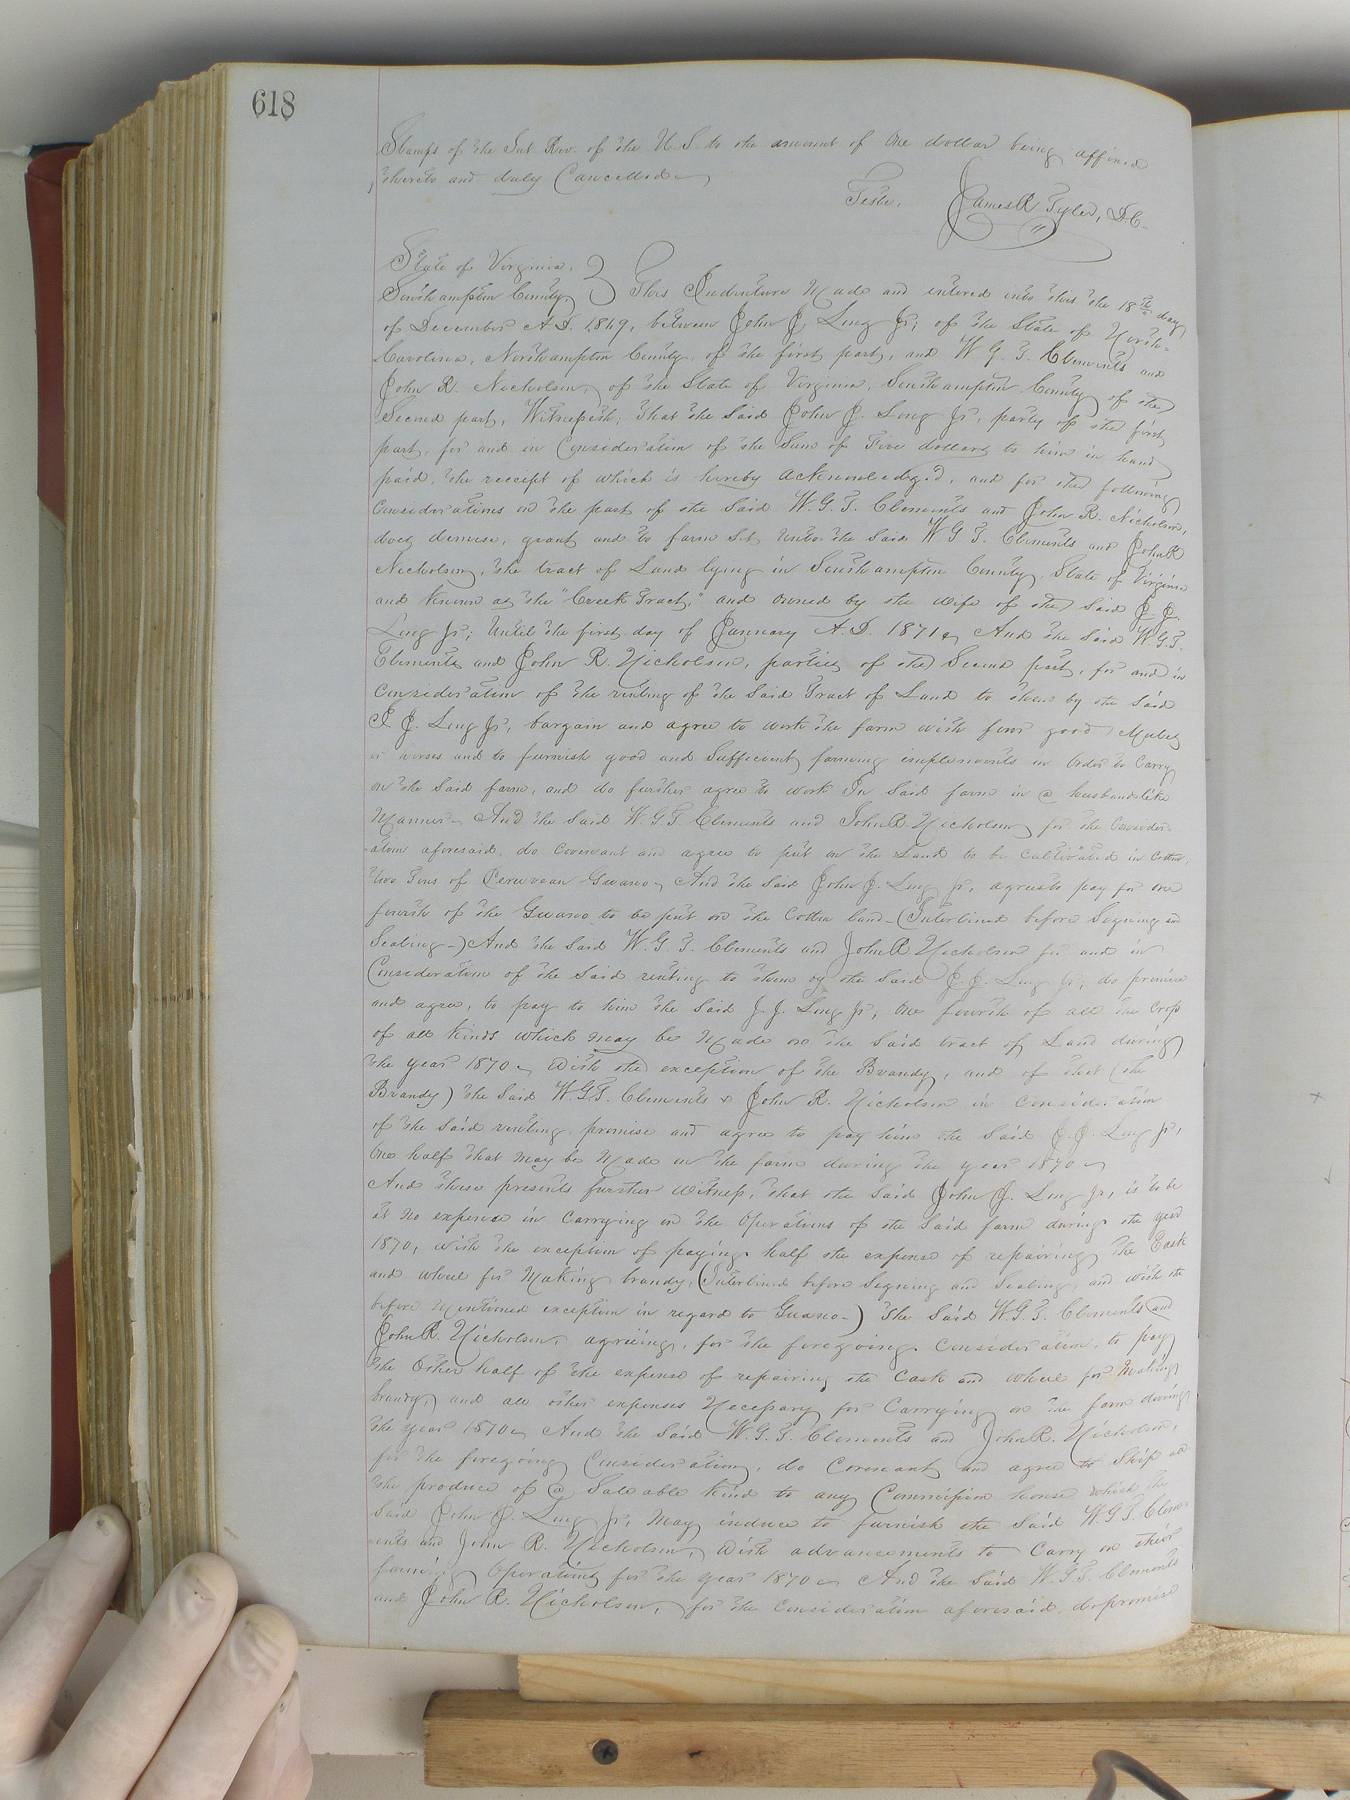 618
Stamps of the Int Rev. of the U.S. to the amount of One dollar being affixed
thereto and duly Cancelled
Teste, James R Tyler, D.C.
State of Virginia,
Southampton County, This Indenture Made and entered into this the 18th day
of December A.D. 1869, between John J. Long Jr; of the State of North-
Carolina, Northampton County, of the first part, and W G. T. Clements and
John R. Nicholson, of the State of Virginia, Southampton County of the
Second part, Witnesseth, that the Said John J. Long Jr, party of the first
part, for and in Consideration of the Sum of Five dollars to him in hand
paid, the receipt of which is hereby acknowledged, and for the following
Considerations on the part of the Said W. G. T. Clements and John R. Nicholson,
does demise, grant and to farm let unto the Said W G T. Clements and John R
Nicholson, the tract of Land lying in Southampton County, State of Virginia
and known as the "Creek Tract," and owned by the wife of the Said J. J.
Long Jr; Until the first day of January A.D. 1871, And the Said W. G. T.
Clements and John R. Nicholson, parties of the Second part, for and in
Consideration of the renting of the Said Tract of Land to them by the Said
J. J. Long Jr, bargain and agree to work the farm with four good Mules
or horses and to furnish good and Sufficient farming emplements in Order to Carry
on the Said farm, and do further agree to work the Said farm in a husbandlike
Manner- And the Said W. G. T. Clements and John R. Nicholson for the Consider-
-ation aforesaid, do Covenant and agree to put on the Land to be cultivated in Cotton,
two Tons of Peruvean Guano, And the Said John J. Long Jr, agrees to pay for one
fourth of the Guano to be put on the Cotton land-(Interlined before Signing and
Sealing-) And the Said W. G. T. Clements and John R Nicholson for and in
Consideration of the Said renting to them by the Said J. J. Long Jr, do promise
and agree, to pay to him the Said J. J. Long Jr, One fourth of all the Crop
of all kinds which may be Made on the Said tract of Land during
the year 1870, With the exception of the Brandy, and of that (the
Brandy) the Said W. G. T. Clements & John R. Nicholson in consideration
of the Said renting promise and agree to pay him the Said J. J. Long Jr,
One half that may be Made on the farm during the year 1870
And these presents further Witness, that the Said John J. Long Jr, is to be
at no expense in Carrying on the Operations of the Said farm during the year
1870, with the exception of paying half the expense of repairing the Cask
and wheel for Making brandy, (Interlined before Signing and Sealing and with the
before Mentioned exception in regard to Guano-) The Said W. G. T. Clements and
John R. Nicholson, agreeing, for the foregoing Consideration, to pay
the Other half of the expense of repairing the Cask and Wheel for Making
brandy, and all other expenses Necessary for Carrying on the farm during
the year 1870, And the Said W. G. T. Clements and John R. Nicholson,
for the foregoing Consideration, do Covenant and agree to Ship all
the produce of a Saleable kind to any Commission house which the
Said John J. Long Jr, May induce to furnish the Said W. G. T. Clem-
-ents and John R. Nicholson, with advancements to Carry on their
farming Operations for the year 1870, And the Said W. G. T. Clements
and John R. Nicholson, for the Consideration aforesaid, do promise